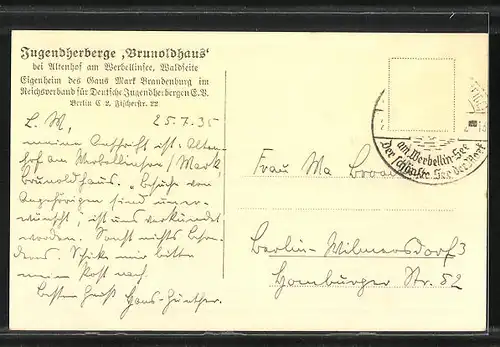 Jugendherberge „Brunoldhaus“
bei Altenhof am Werbellinsee, Waldseite
Eigenheim des Gaus Mark Brandenburg im
Reichsverband für Deutsche Jugendherbergen E.V.
Berlin C 2, Fischerstr. 22
L. M, 25.7.35
meine Anschrift ist: Alten-
hof am Werbellinsee / Mark
Brunoldhaus. Besuche von
Angehörigen sind uner-
wünscht, ist uns verkündet
worden. Sonst nichts Beson-
deres. Schicke mir bitten
meine Post nach.
Besten Gruß Hans-Günther.
am Werbellin-See
Der schönste See der Mark
Frau Ma
Berlin-Wilmersdorf 3
Homburger Str. 52